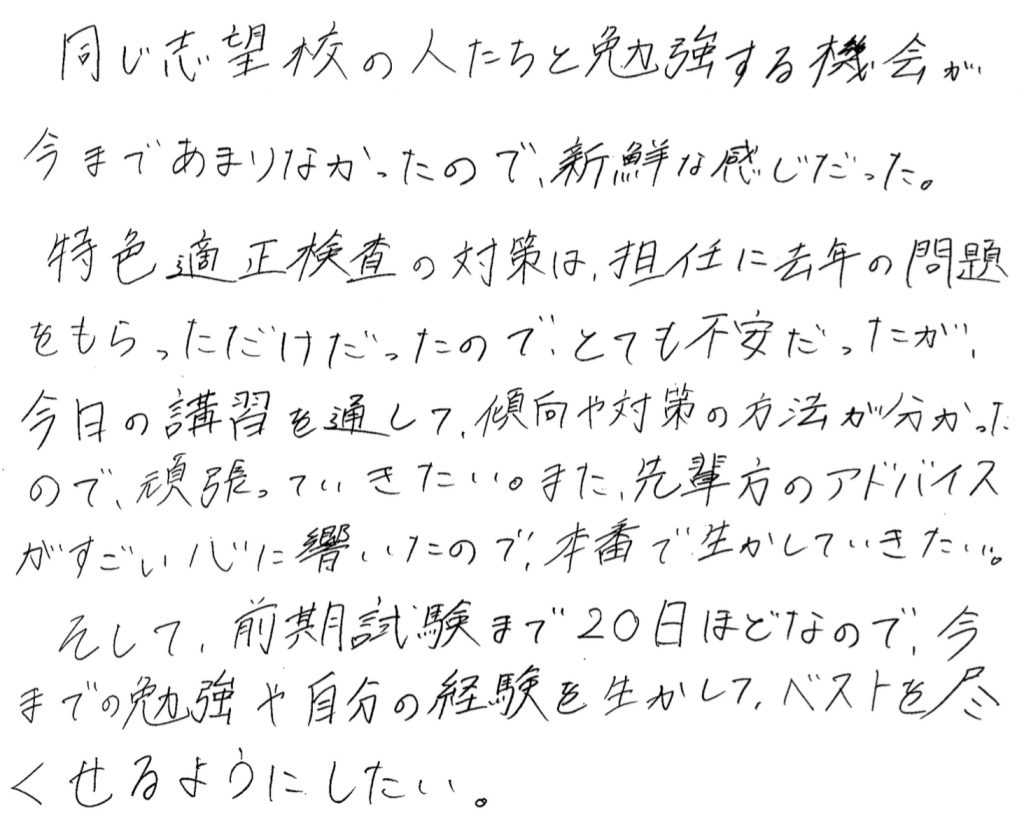 同じ志望校の人たちと勉強する機会が
今まであまりなかったので、新鮮な感じだった。
特色適正検査の対策は、担任に去年の問題
をもらっただけだったので、とても不安だったが、
今日の講習を通して、傾向や対策の方法が分かった
ので、頑張っていきたい。また、先輩方のアドバイス
がすごい心に響いたので、本番で生かしていきたい。
そして、前期試験まで20日ほどなので、今
までの勉強や自分の経験を生かして、ベストを尽
くせるようにしたい。